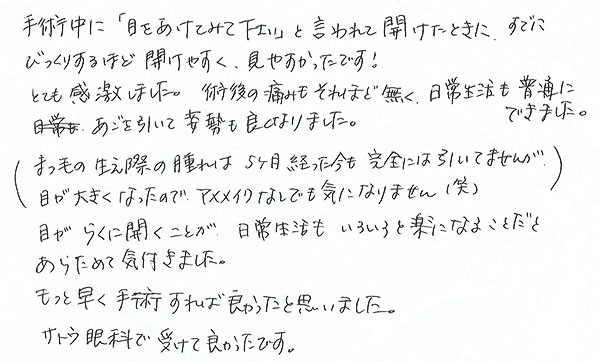 手術中に「目をあけてみて下さい」と言われて開けたときに、すでに
びっくりするほど開けやすく、見やすかったです！
とても感激しました。術後の痛みもそれほど無く、日常生活も普通に
できました。
あごを引いて姿勢も良くなりました。
（まつ毛の生え際の腫れは5ヶ月経った今も完全には引いてませんが、
目が大きくなったので、アイメイクなしでも気になりません（笑））
目がらくに開くことが、日常生活もいろいろと楽になることだと
あらためて気付きました。
もっと早く手術すれば良かったと思いました。
サトウ眼科で受けて良かったです。